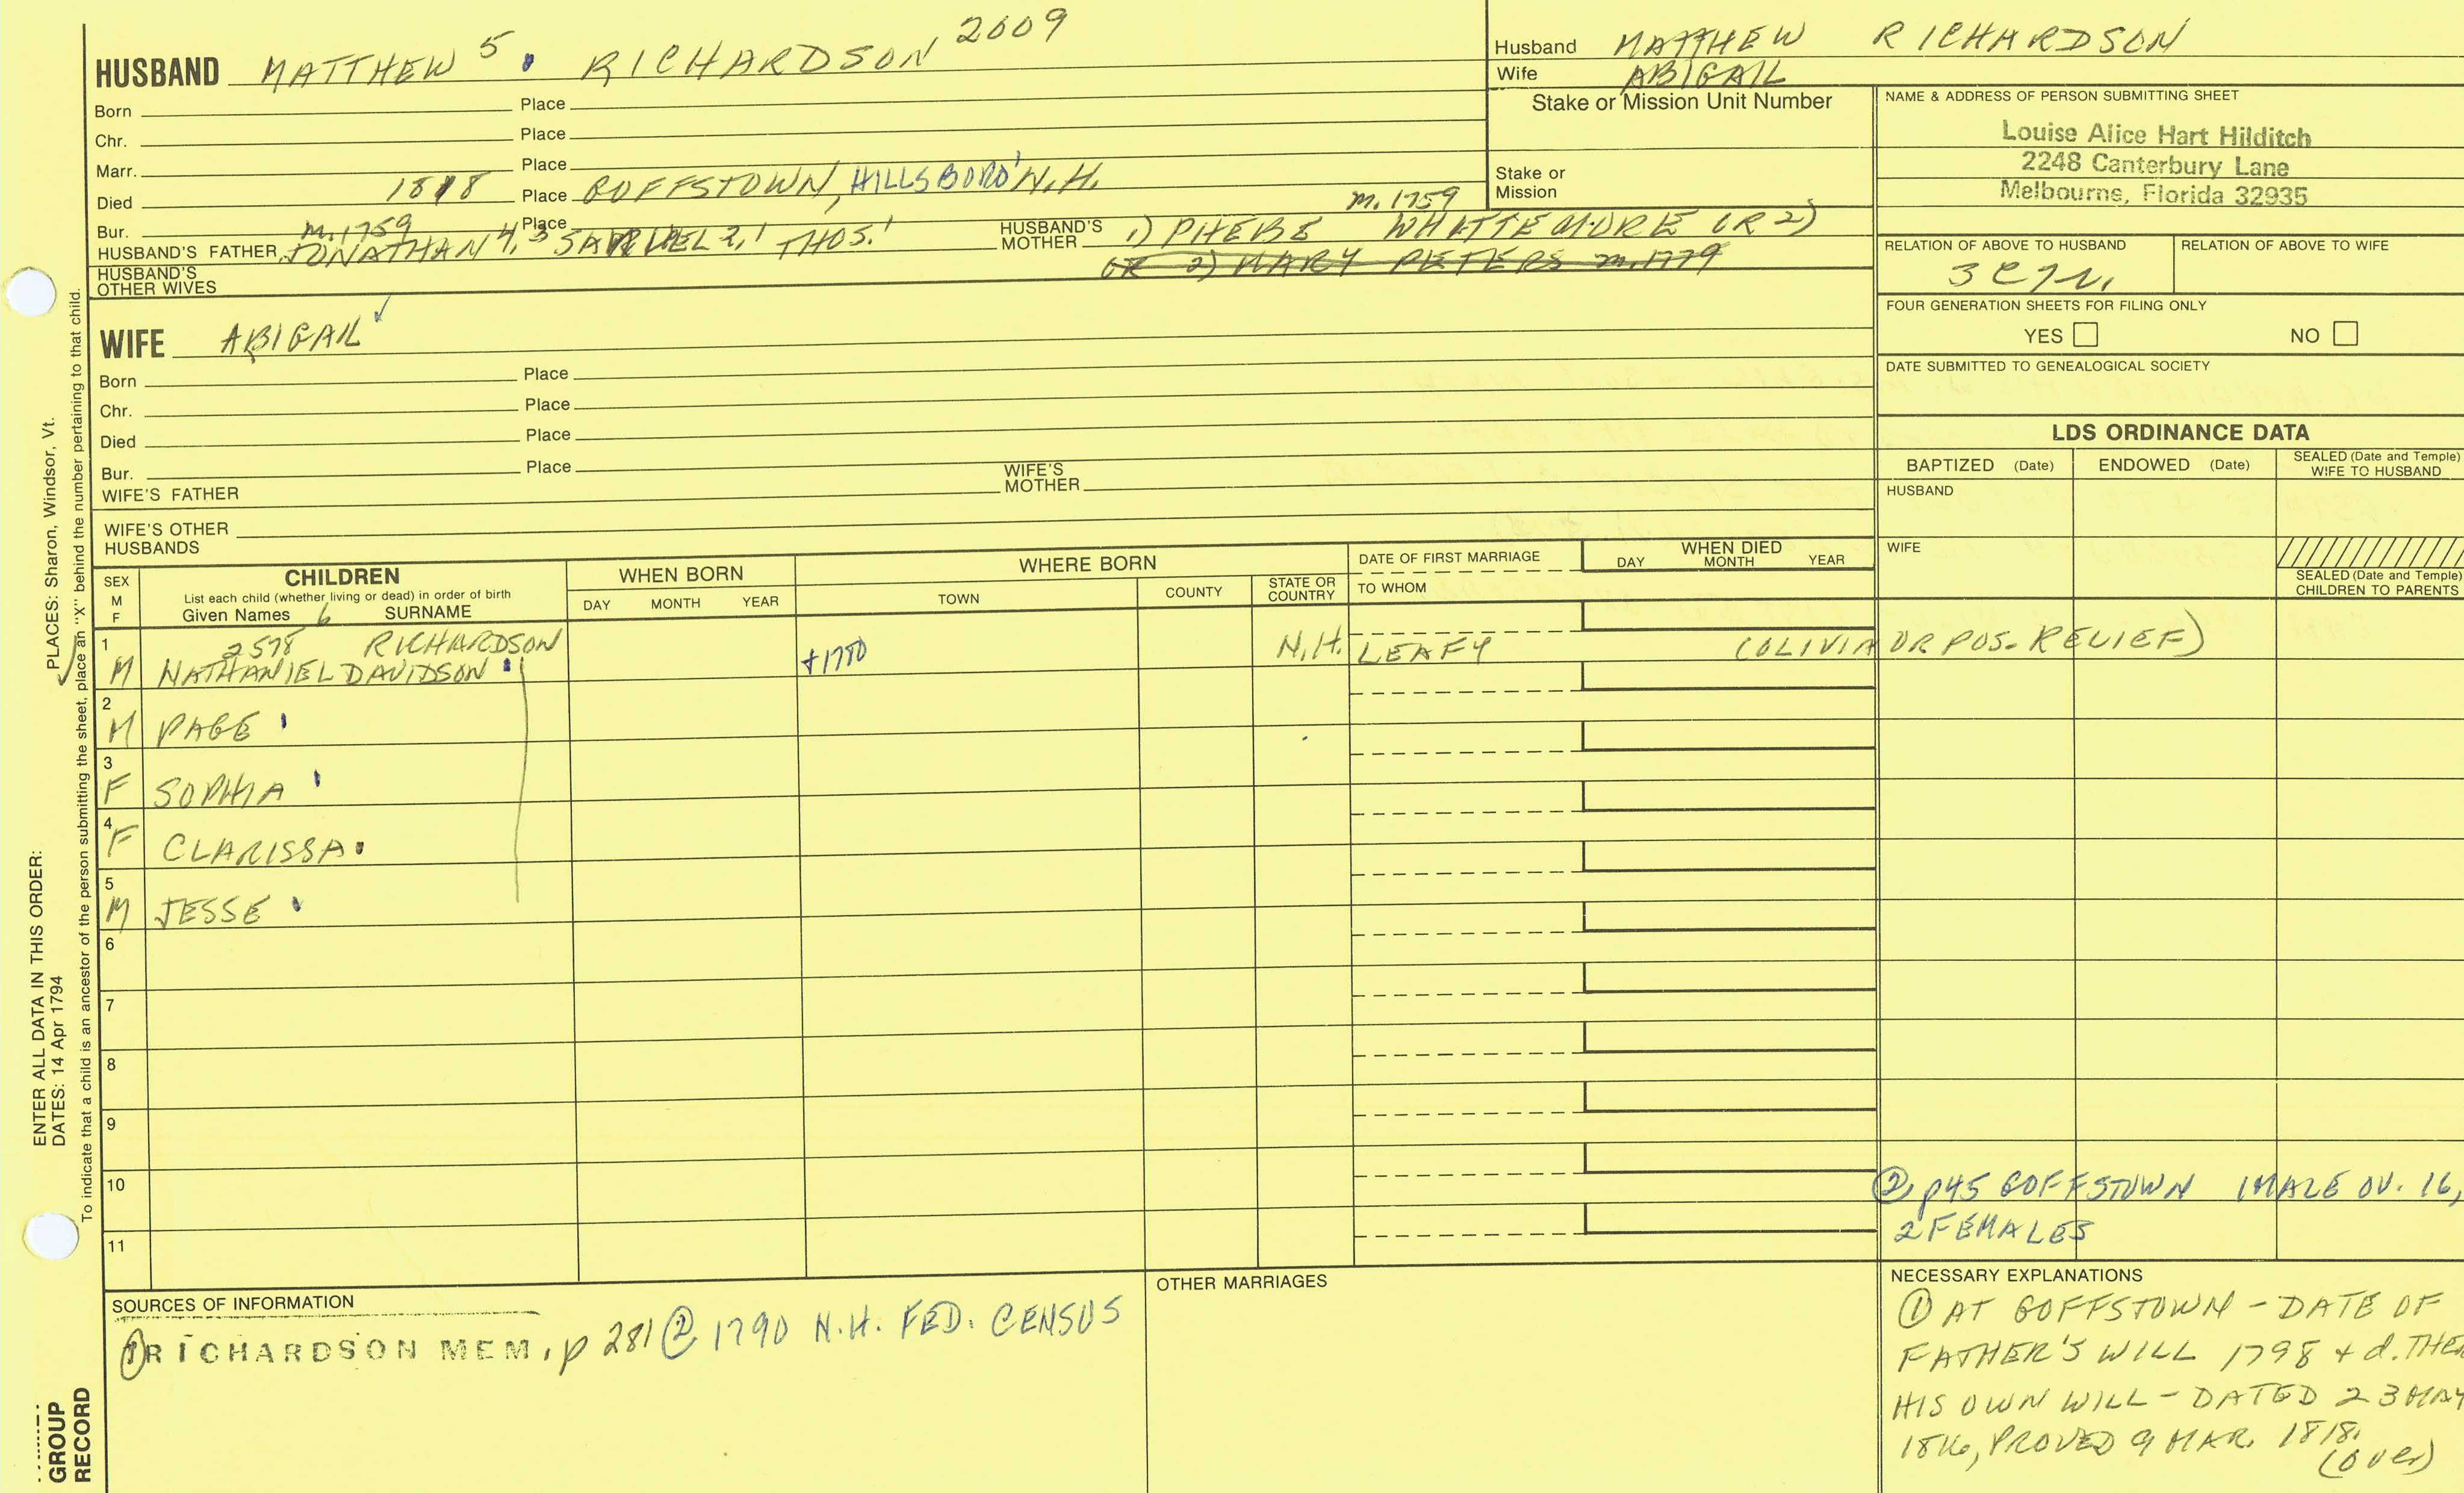 HUSBAND MATTHEW 5 . RICHARDSON 2009
Born Place
Chr. Place
Marr. Place
Died 1818 Place GOFFSTOWN, HILLSBORO' N.H.
Bur. Place
m. 1759 m. 1759
HUSBAND'S FATHER JONATHAN 4, 3 SAMUEL 2, 1 THOS. 1 HUSBAND'S MOTHER 1) PHEBE WHITTEMORE (R 2)
OR 2) MARY PETERS m. 1779
HUSBAND'S OTHER WIVES
Husband MATTHEW RICHARDSON
Wife ABIGAIL
Stake or Mission Unit Number
Stake or Mission
NAME & ADDRESS OF PERSON SUBMITTING SHEET
Louise Alice Hart Hilditch
2248 Canterbury Lane
Melbourne, Florida 32935
RELATION OF ABOVE TO HUSBAND RELATION OF ABOVE TO WIFE
FOUR GENERATION SHEETS FOR FILING ONLY
YES NO
DATE SUBMITTED TO GENEALOGICAL SOCIETY
WIFE ABIGAIL ✓
Born Place
Chr. Place
Died Place
Bur. Place
WIFE'S FATHER WIFE'S MOTHER
WIFE'S OTHER HUSBANDS
LDS ORDINANCE DATA
BAPTIZED (Date) ENDOWED (Date) SEALED (Date and Temple) WIFE TO HUSBAND
HUSBAND
WIFE
SEALED (Date and Temple) CHILDREN TO PARENTS
SEX M F
CHILDREN
List each child (whether living or dead) in order of birth
Given Names 6 SURNAME
WHEN BORN
DAY MONTH YEAR
WHERE BORN
TOWN COUNTY STATE OR COUNTRY
DATE OF FIRST MARRIAGE
TO WHOM
WHEN DIED
DAY MONTH YEAR
1 2578 RICHARDSON
M NATHANIEL DAVIDSON +1780 N.H. LEAFY (OLIVIA OR POS. RELIEF)
2
M PAGE
3
F SOPHIA
4
F CLARISSA
5
M JESSE
6
7
8
9
10
11
② p45 GOFFSTOWN 1 MALE OV. 16,
2 FEMALES
SOURCES OF INFORMATION
① RICHARDSON MEM, p 281 ② 1790 N.H. FED. CENSUS
OTHER MARRIAGES
NECESSARY EXPLANATIONS
① AT GOFFSTOWN - DATE OF
FATHER'S WILL 1798 + d. THE
HIS OWN WILL - DATED 23 MAY
1816, PROVED 9 MAR. 1818.
(over)
ENTER ALL DATA IN THIS ORDER:
DATES: 14 Apr 1794
PLACES: Sharon, Windsor, Vt.
To indicate that a child is an ancestor of the person submitting the sheet, place an "X" behind the number pertaining to that child.
GROUP
RECORD